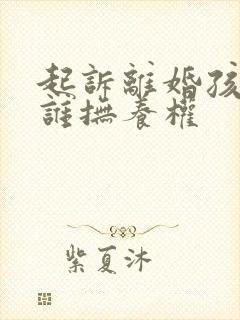 起訴離婚孩
誰撫養權
紫夏沐